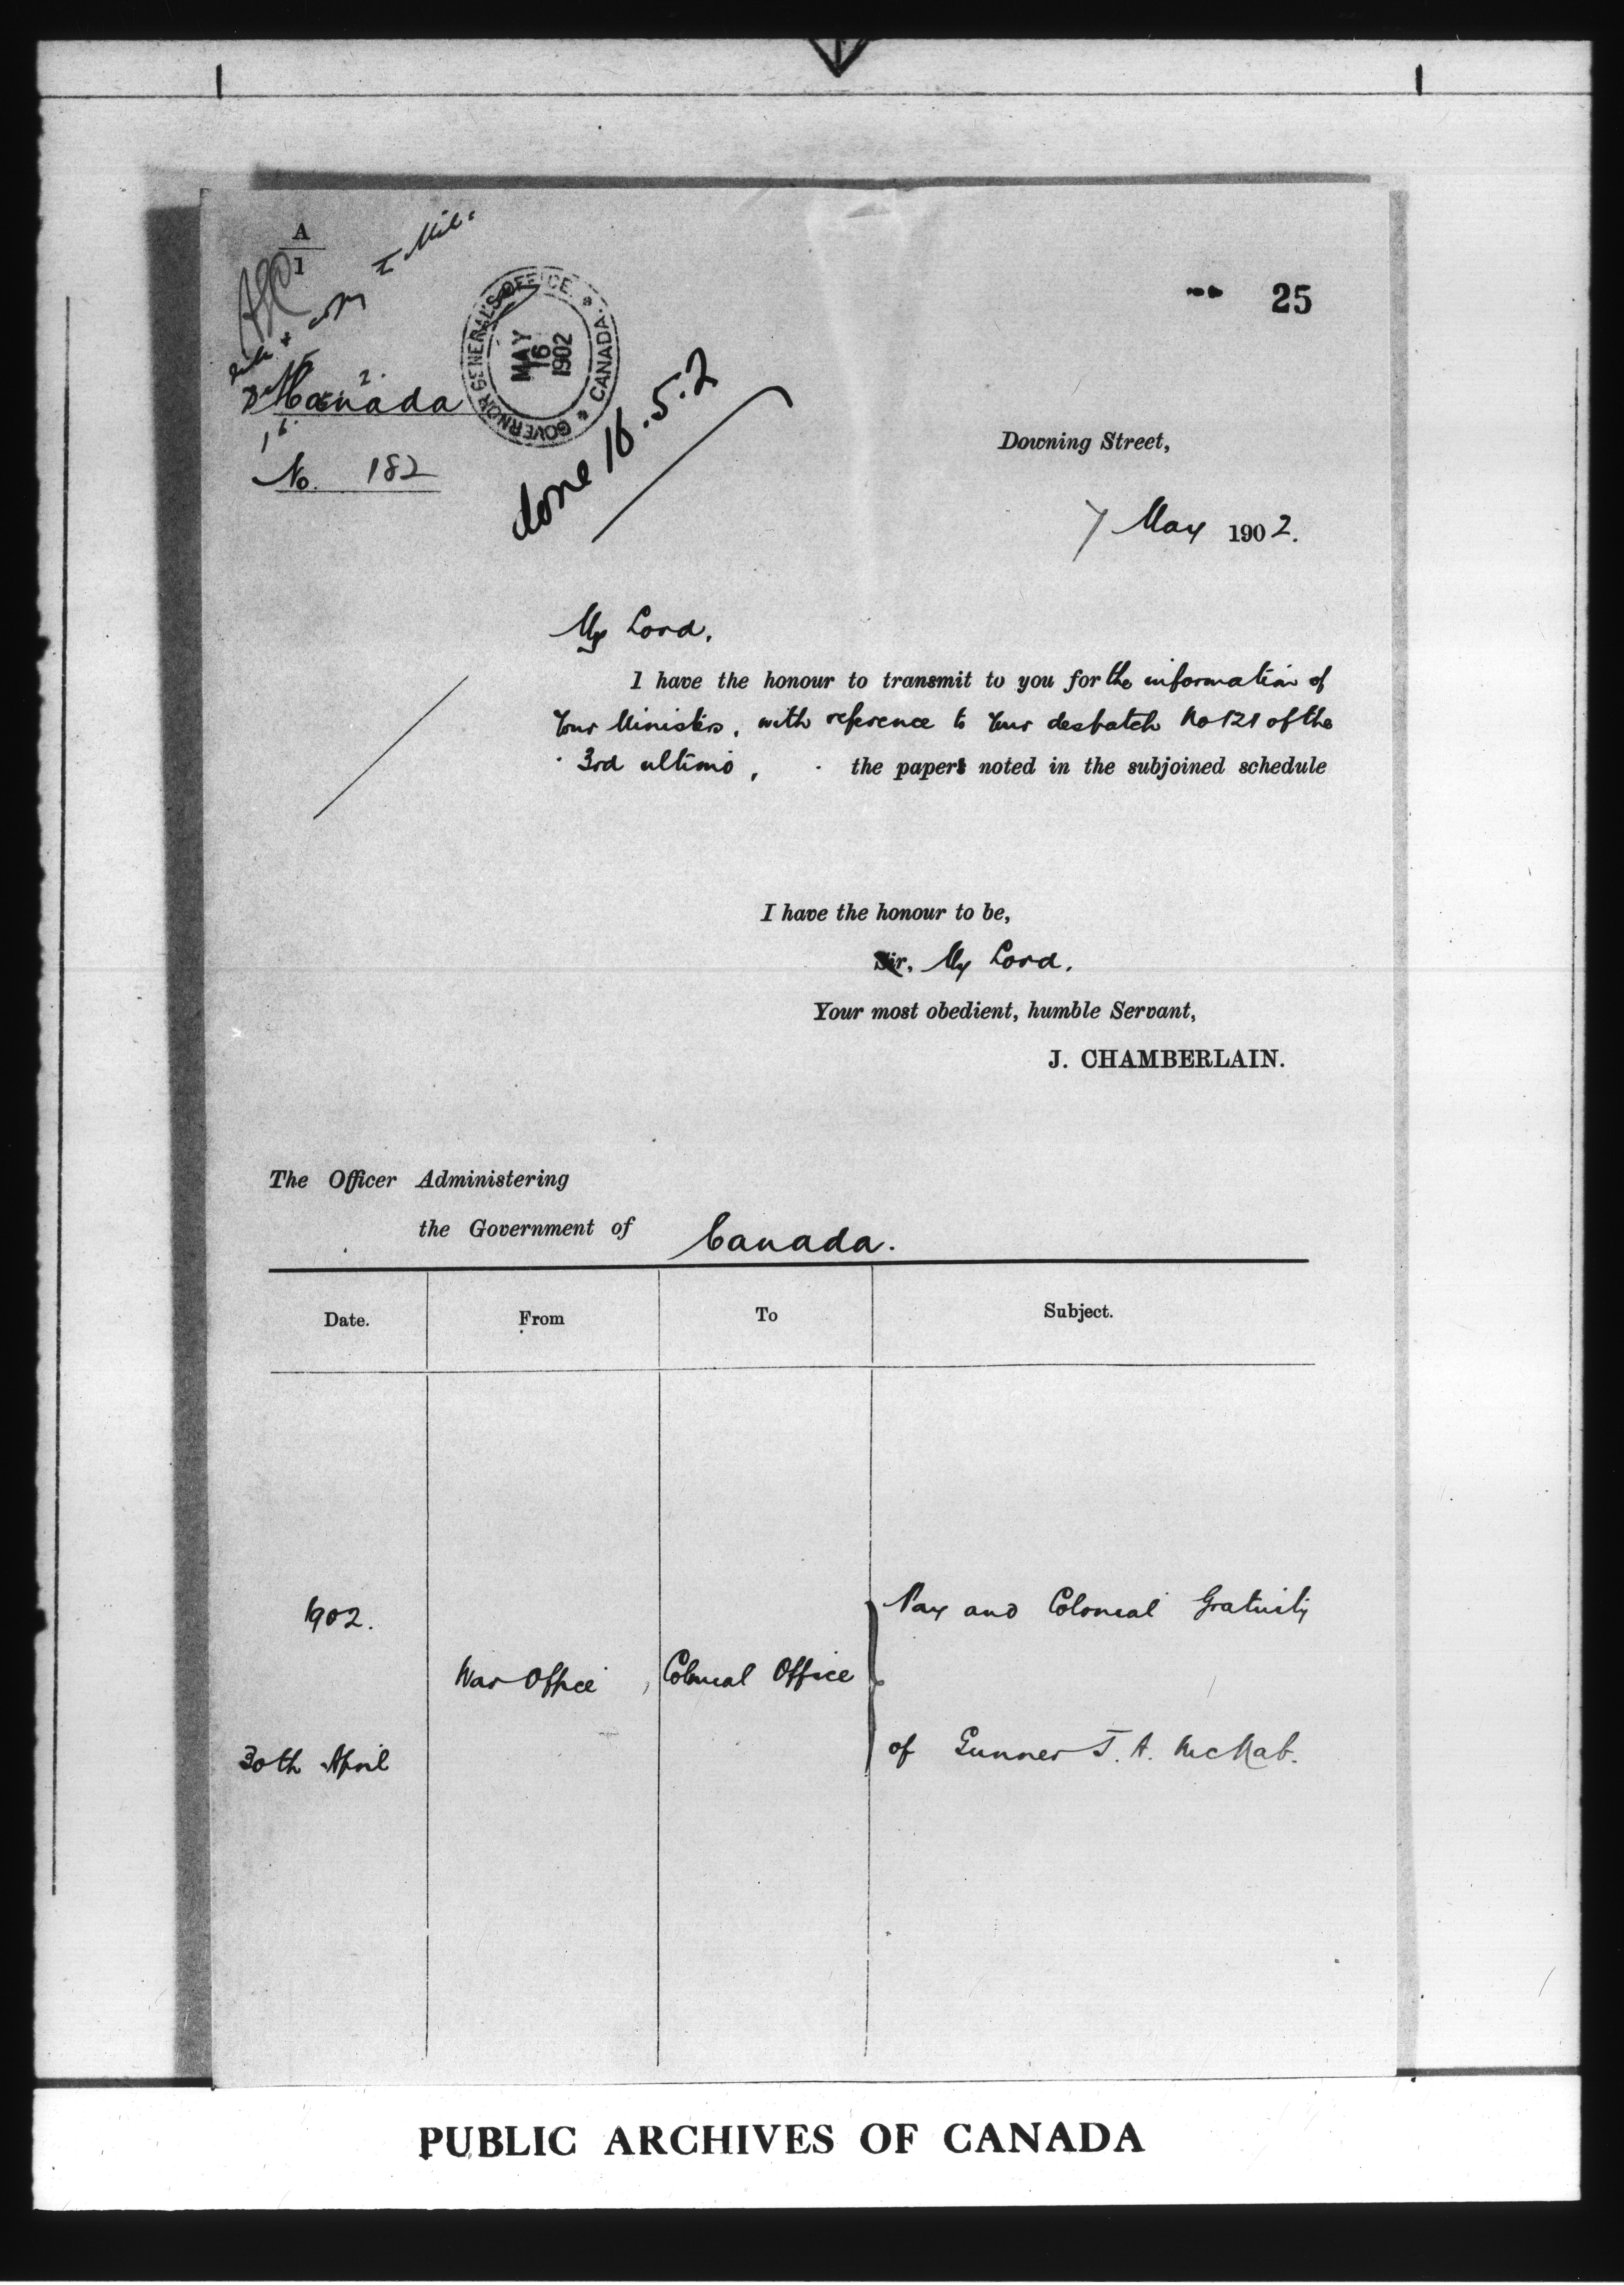 A
1
copy to Mil.
25
GOVERNOR GENERAL'S OFFICE
CANADA
MAY
16
1902
Canada
No. 182
done 16.5.2
Downing Street,
7 May 1902.
My Lord,
I have the honour to transmit to you for the information of
Your Ministers, with reference to Your despatch No 121 of the
3rd ultimo, the papers noted in the subjoined schedule
I have the honour to be,
Sir, My Lord,
Your most obedient, humble Servant,
J. CHAMBERLAIN.
The Officer Administering
the Government of Canada.
Date. From To Subject.
1902. Pay and Colonial Gratuity
War Office Colonial Office
30th April of Gunner J. A. McNab.
PUBLIC ARCHIVES OF CANADA